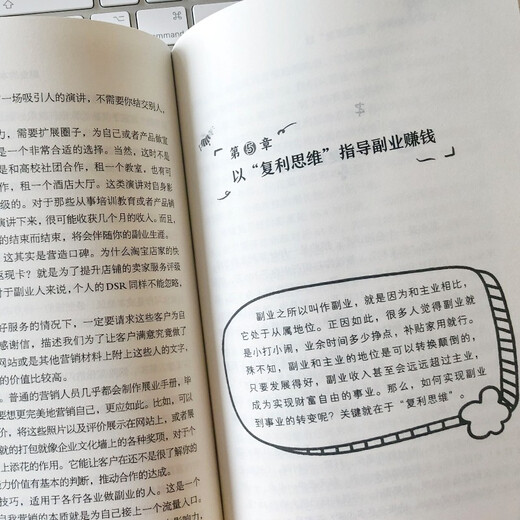 一场吸引人的演讲，不需要你结交别人，
力，需要扩展圈子，为自己或者产品做宣
是一个非常合适的选择。当然，这时不是
是和高校社团合作，租一个教室，也有可
作，租一个酒店大厅。这类演讲对自身影
级的。对于那些从事培训教育或者产品销
演讲下来，很可能收获几个月的收入。而且，
的结束而结束，将会伴随你的副业生涯。
这其实是营造口碑。为什么淘宝店家的快
返现卡？就是为了提升店铺的卖家服务评级
对于副业人来说，个人的 DSR 同样不能忽略，
好服务的情况下，一定要请求这些客户为自
感谢信，描述我们为了让客户满意究竟做了
网站或是其他营销材料上附上这些人的文字，
的价值比较高。
普通的营销人员几乎都会制作展业手册，毕
要想更完美地营销自己，更应如此。比如，可以
价，将这些照片以及评价展示在网站上，或者展
就的打包就像企业文化墙上的各种奖项，对于个
上添花的作用。它能让客户在还不是很了解你的
力价值有基本的判断，推动合作的达成。
技巧，适用于各行各业做副业的人。这是一个
自我营销的本质就是为自己接上一个流量入口。
第⑤章
以“复利思维”指导副业赚钱
副业之所以叫作副业，就是因为和主业相比，
它处于从属地位。正因如此，很多人觉得副业就
是小打小闹，业余时间多少挣点，补贴家用就行。
殊不知，副业和主业的地位是可以转换颠倒的，
只要发展得好，副业收入甚至会远远超过主业，
成为实现财富自由的事业。那么，如何实现副业
到事业的转变呢？关键就在于“复利思维”。
command